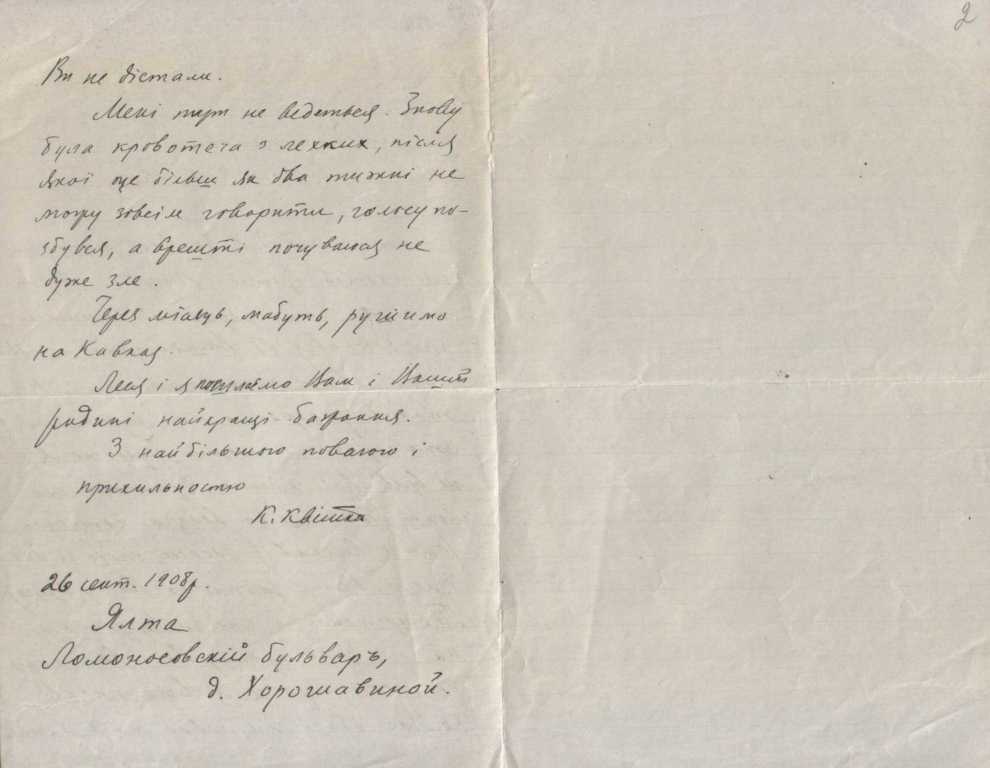 2
Ви не дістали.
Мені тут не ведеться. Знову
була кровотеча з легких, після
якої оце більш як два тижні не
можу зовсім говорити, голосу по-
збувся, а врешті почуваюся не
дуже зле.
Через місяць, мабуть, рушимо
на Кавказ.
Леся і я посилаємо Вам і Вашій
родині найкращі бажання.
З найбільшою повагою і
прихильностю
К. Квітка
26 сент. 1908 р.
Ялта
Ломоносовскій бульваръ,
д. Хорошавиной.